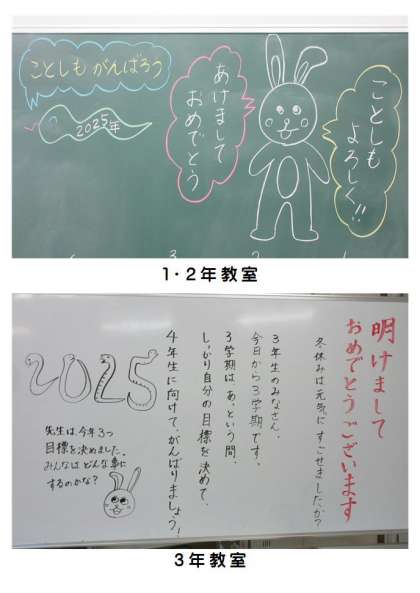 ことしも がんばろう
2025年
あけまして
おめでとう
ことしも
よろしく!!
1・2年教室
明けまして
おめでとうございます
冬休みは元気にすごせましたか?
3年生のみなさん、
今日から3学期です。
3学期は、あ、という間、
しっかり自分の目標を決めて、
4年生に向けて、がんばりましょう!
2025
先生は、今年3つ
目標を決めました。
みんなは どんな事に
するのかな?
3年教室